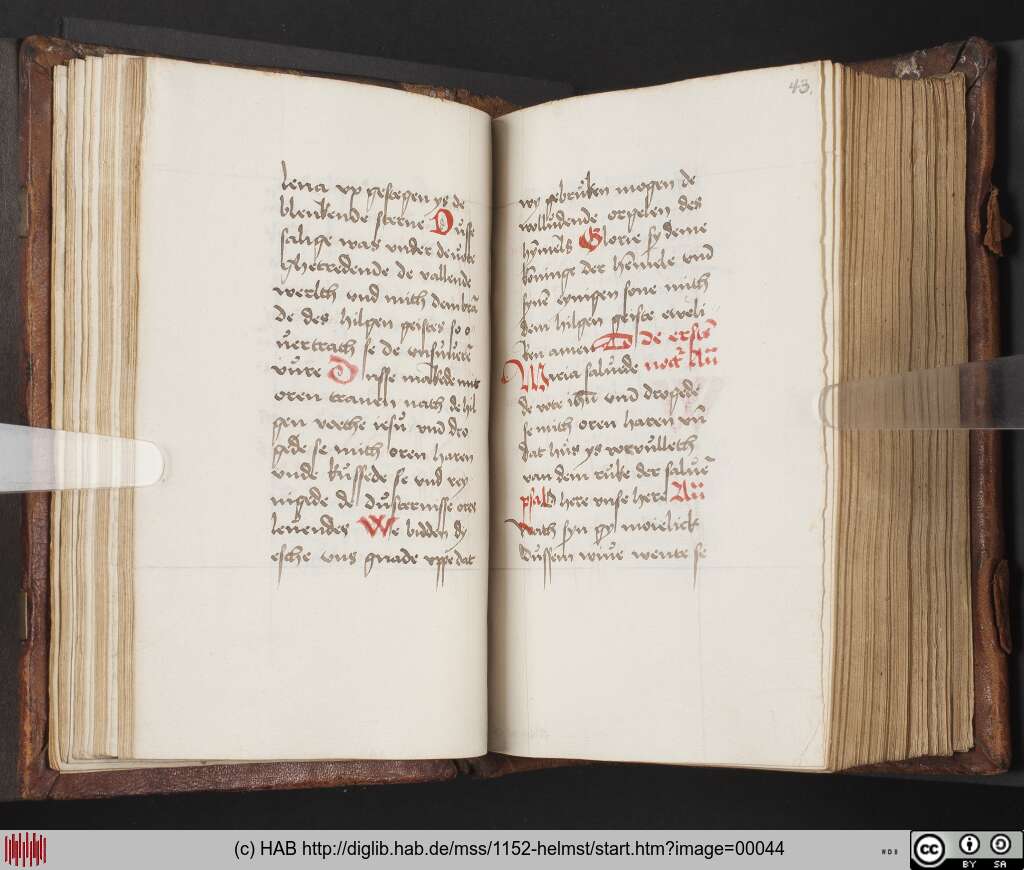 lena vp gestegen ys de
blenkende sterne Dusse
salige was vnder de
ghetredende de vallende
werlth vnd mith dem bra
de des hilgen geistes so o
uertrach se de vnsuuere
vure Dusse malkede mit
oren tranen nach de hil
gen voethe iesu vnd dro
gede se mith oren haren
vnde kussede se vnd rey
nigede de dusternisse ores
leuendes We bidden dy
esche vns gnade vppe dat
43.
wy gebruken mogen de
wolludende orgelen des
hemels Glorie sy deme
koninge der hemele vnd
syne eynigen sone mith
dem hilgen geiste eweli
ken amen To de ersten
Maria saluede noct An
de vote ihu vnd drogede
se mith oren haren vn
dat hus ys voruulleth
van dem roke der salue
psal O here vnse here An
Nath syn gy moielick
dussem wiue wente se
(c) HAB http://diglib.hab.de/mss/1152-helmst/start.htm?image=00044
WDB
cc BY SA